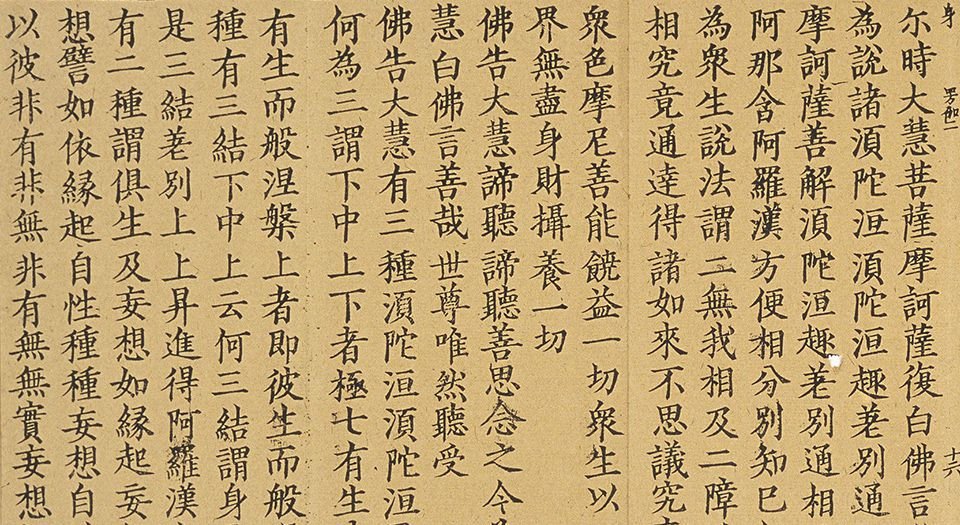 身
十六
尒時大慧菩薩摩訶薩復白佛言
為說諸湏陀洹湏陀洹趣差別通
摩訶薩善解湏陀洹趣差別通相
阿那舍阿羅漢方便相分別知已
為衆生說法謂二無我相及二障
相究竟通達得諸如來不思議究
衆色摩尼善能饒益一切衆生以
界無盡身財攝養一切
佛告大慧諦聽諦聽善思念之今
慧白佛言善哉世尊唯然聽受
佛告大慧有三種湏陀洹湏陀洹
何為三謂下中上下者極七有生
有生而般涅槃上者即彼生而般
種有三結下中上云何三結謂身
是三結差別上上昇進得阿羅漢
有二種謂俱生及妄想如緣起妄
想譬如依緣起自性種種妄想自
以彼非有非無非有無無實妄想